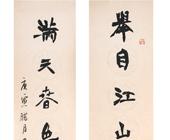 舉目江山
滿天春色
庚寅腊月